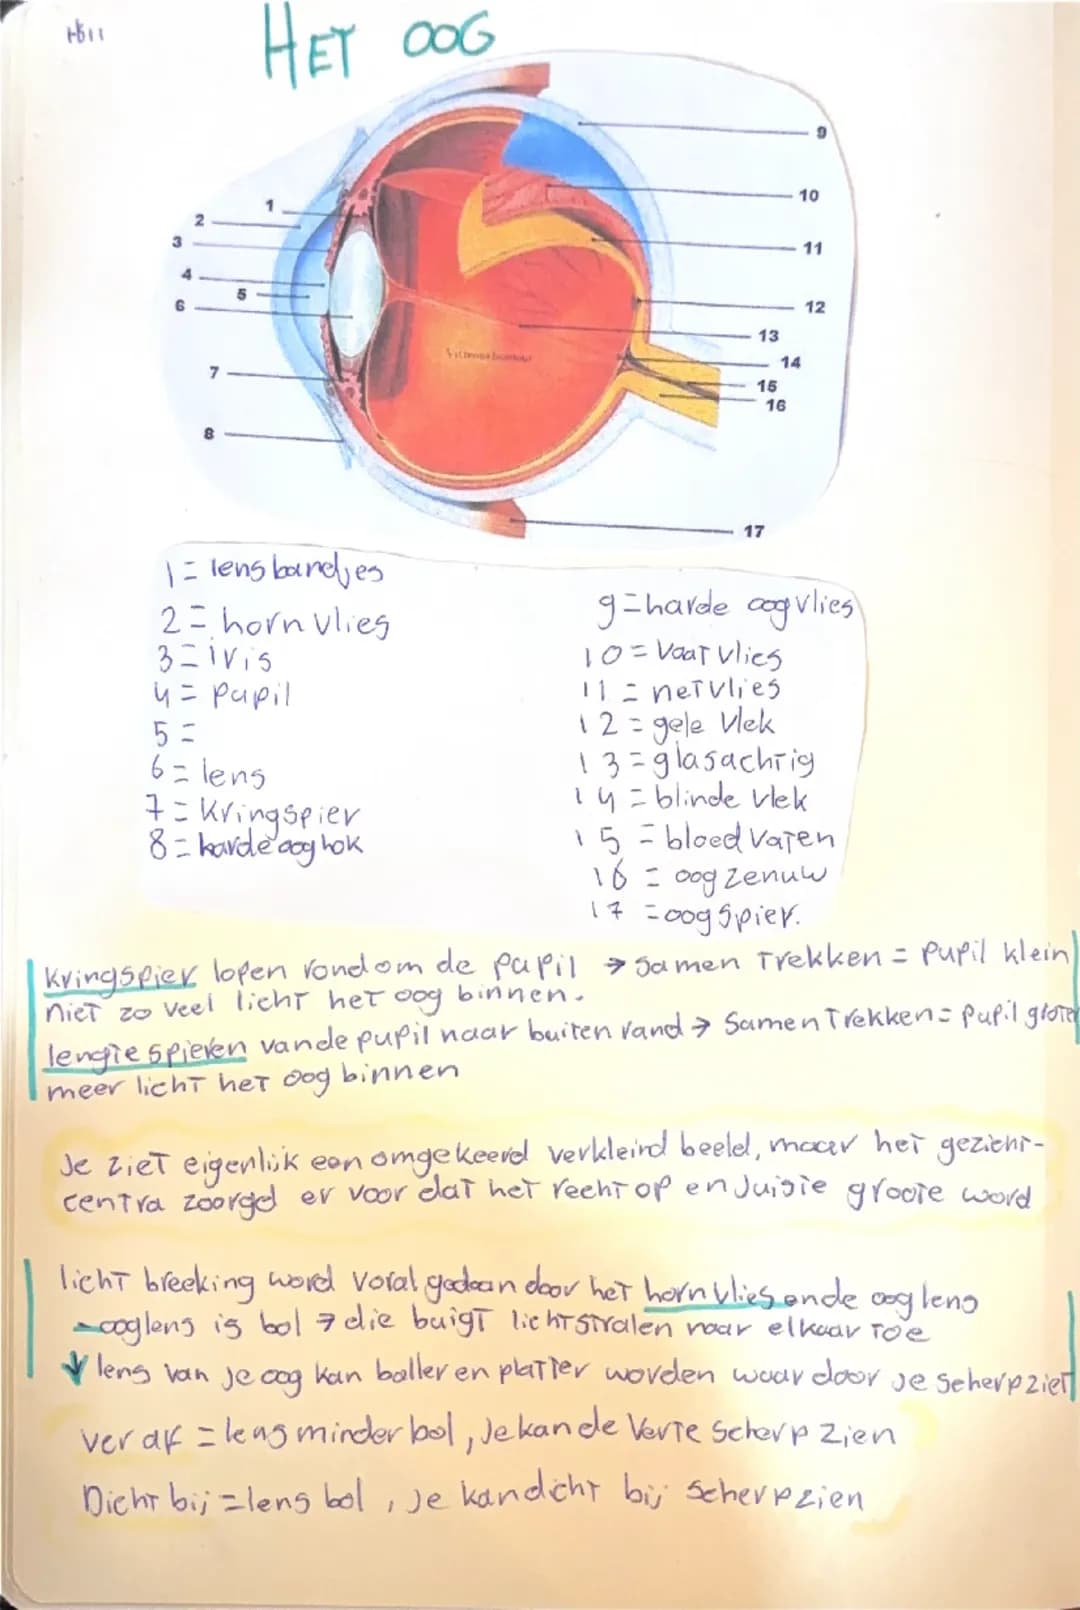 HB11
HET OOG
1
2
3
4
5
6
7
8
9
10
11
12
13
14
15
16
17
1 = lensbandjes
2 = hornvlies
3 = iris
4 = pupil
5 =
6 = lens
7 = kringspier
8 = harde oog hok
9 = harde oogvlies
10 = vaatvlies
11 = netvlies
12 = gele vlek
13 = glasachtig
14 = blinde vlek
15 = bloedvaten
16 = oogzenuw
17 = oogspier.
kringspier lopen rondom de pupil → samen trekken = pupil klein
niet zo veel licht het oog binnen.
lengte spieren van de pupil naar buiten rand → samen trekken = pupil groter
meer licht het oog binnen
Je ziet eigenlijk een omgekeerd verkleind beeld, maar het gezicht-
centra zoorgd er voor dat het recht op en juiste groote word
licht breeking word voral gedaan door het hornvlies en de ooglens
- ooglens is bol → die buigt lichtstralen naar elkaar toe
↓ lens van je oog kan boller en platter worden waardoor je scherp ziet
ver af = lens minder bol, je kan de verte scherp zien
Dicht bij = lens bol, je kan dicht bij scherp zien